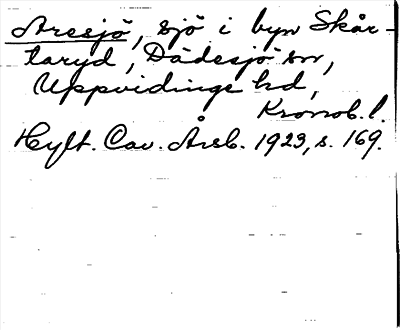 Aresjö, sjö i byn Skår-
taryd, Dädesjö sn,
Uppvidinge hd,
Kronob. l.
Hylt. Cav. Årsb. 1923, s. 169.